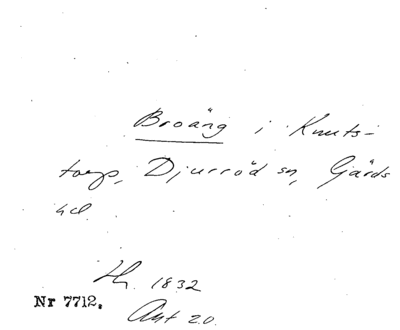 Broäng i Knuts-
torp, Djurröd sn, Gärds
hd.
Lh. 1832
Nr 7712.
Akt 20.